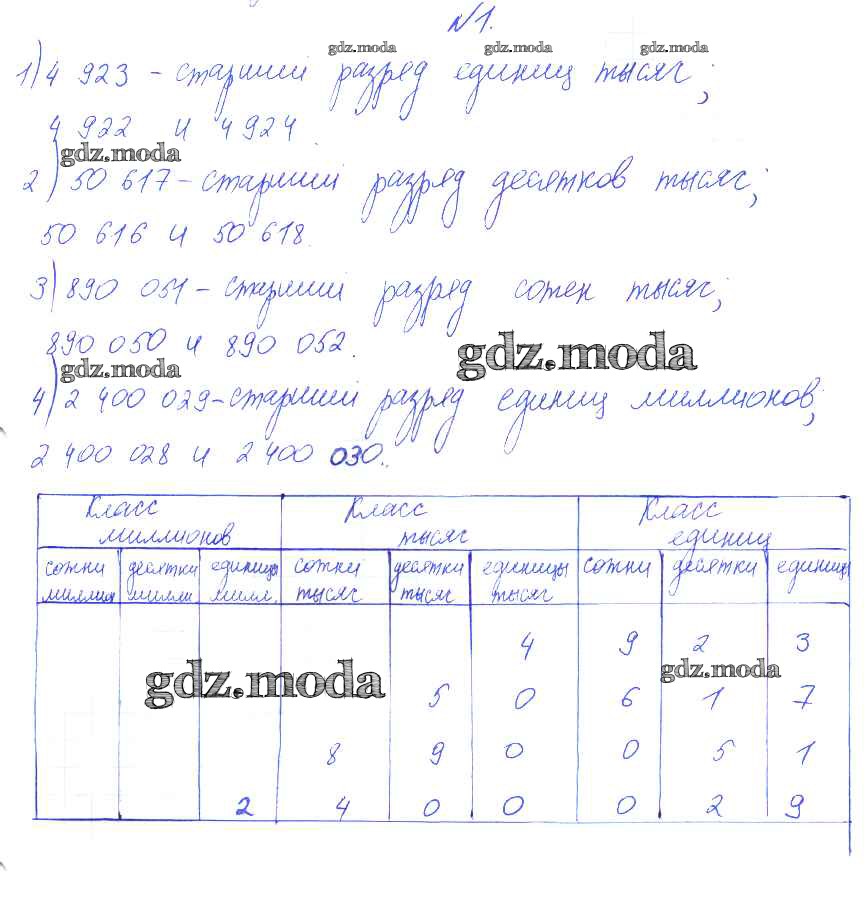 №1.
gdz.moda gdz.moda gdz.moda
1) 4 923 – старший разряд единиц тысяч;
4 922 и 4 924.
gdz.moda
2) 50 617 – старший разряд десятков тысяч;
50 616 и 50 618.
3) 890 051 – старший разряд сотен тысяч;
890 050 и 890 052.
gdz.moda gdz.moda
4) 2 400 029 – старший разряд единиц миллионов;
2 400 028 и 2 400 030.
Класс миллионов Класс тысяч Класс единиц
сотни миллион десятки милли единицы милл. сотки тысяч десятки тысяч единицы тысяч сотни десятки единицы
4 9 2 3
gdz.moda gdz.moda
5 0 6 1 7
8 9 0 0 5 1
2 4 0 0 0 2 9